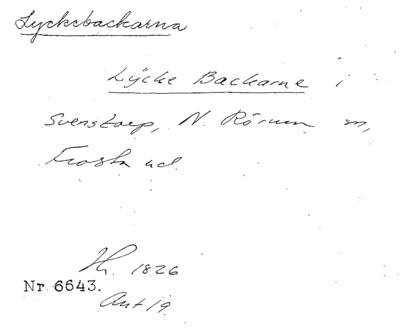 Lyckebackarna
Lÿcke Backarne i
Svenstorp, N. Rörum sn,
Frosta hd.
1826
Nr 6643.
Ant 19.